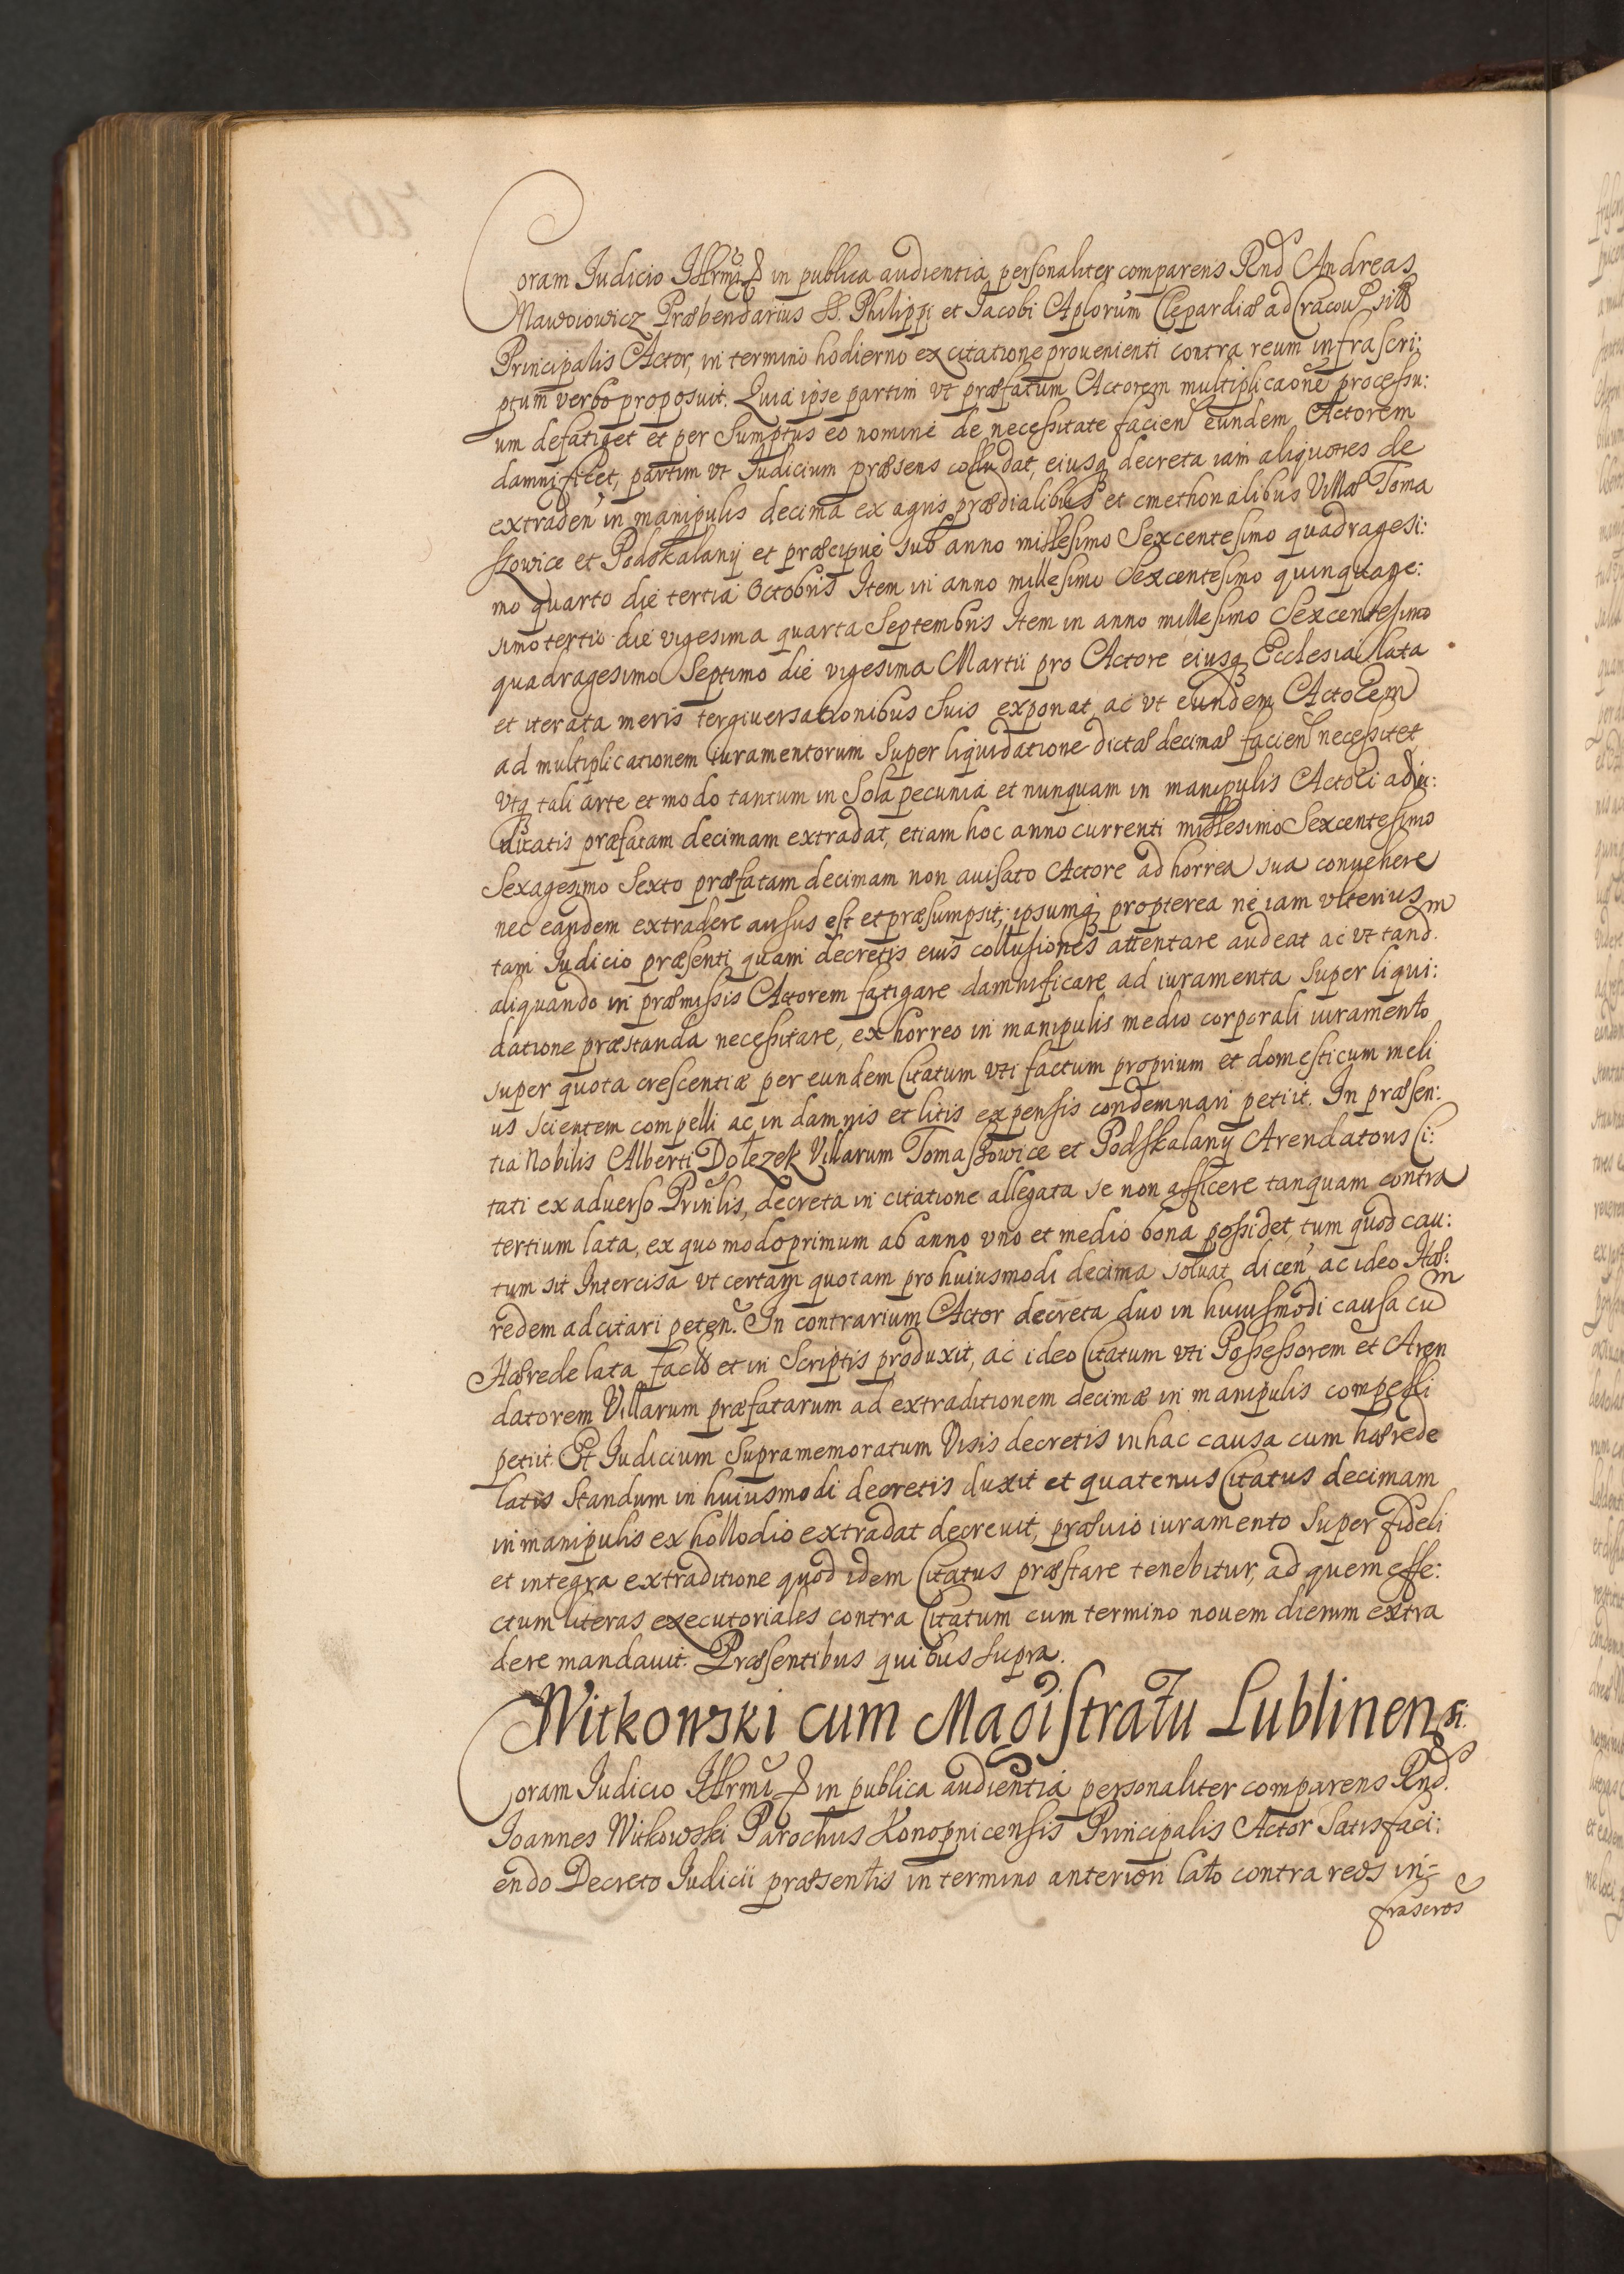 Coram Iudicio Illrmi &c in publica audientia personaliter comparens Rnd Andreas
Nawoiowicz Præbendarius SS. Philippi et Iacobi Aplorum Clepardiæ ad Cracou
Principalis Actor, in termino hodierno ex citatione prouenienti contra reum infrascri:
ptum verbo proposuit. Quia ipse partim vt præfatum Actorem multiplicaone processu:
um defatiget et per Sumptus eo nomine de necessitate facien eundem Actorem
damnificet, partim vt Iudicium præsens colludat, eiusq decreta iam aliquoties de
extraden in manipulis decima ex agris prædialibus et cmethonalibus Villæ Toma
szowice et Podskalany et præcipue sub anno millesimo Sexcentesimo quadragesi:
mo quarto die tertia Octobris Item in anno millesimo Sexcentesimo quinquage:
simo tertio die vigesima quarta Septembris Item in anno millesimo Sexcentesimo
quadragesimo Septimo die vigesima Martii pro Actore eiusq Ecclesia lata
et iterata meris tergiuersationibus Suis exponat, ac vt eundem Actorem
ad multiplicationem iuramentorum Super liquidatione dictæ decimæ facien necessitet
vtq tali arte et modo tantum in Sola pecunia et nunquam in manipulis Actori adiu:
dicatis præfatam decimam extradat, etiam hoc anno currenti millesimo Sexcentesimo
Sexagesimo Sexto præfatam decimam non auisato Actore ad horrea sua conuehere
nec eandem extradere ausus est et præsumpsit; ipsumq propterea ne iam vlterius
tam Iudicio præsenti quam decretis eius collusiones attentare audeat ac vt tandm
aliquando in præmissis Actorem fatigare damnificare ad iuramenta Super liqui:
datione præstanda necessitare, ex horreo in manipulis medio corporali iuramento
super quota crescentiæ per eundem Citatum vti factum proprium et domesticum meli
us Scientem compelli ac in damnis et litis expensis condemnari petiit. In præsen:
tia Nobilis Alberti Dołezek Villarum Tomaszowice et Podskalany Arendatoris Ci:
tati ex aduerso Prinlis, decreta in citatione allegata se non afficere tanquam contra
tertium lata, ex quo modo primum ab anno vno et medio bona possidet, tum quod cau:
tum sit Intercisa vt certam quotam pro huiusmodi decima soluat dicen, ac ideo Hæ:
redem adcitari peten. In contrarium Actor decreta duo in huiusmodi causa cum
Hærede lata facto et in Scriptis produxit, ac ideo Citatum vti Possessorem et Aren
datorem Villarum præfatarum ad extraditionem decimæ in manipulis compelli
petiit. Et Iudicium Supramemoratum Visis decretis in hac causa cum hærede
latis Standum in huiusmodi decretis duxit et quatenus Citatus decimam
in manipulis ex hollodio extradat decreuit, præuio iuramento Super fideli
et integra extraditione quod idem Citatus præstare tenebitur, ad quem effe:
ctum literas executoriales contra Citatum cum termino nouem dierum extra
dere mandauit. Præsentibus quibus supra.
Witkowski cum Magistratu Lublinensi.
Coram Iudicio Illrmi &c in publica audientia personaliter comparens Rnd.
Ioannes Witkowski Parochus Konopnicensis Principalis Actor Satisfaci:
endo Decreto Iudicii præsentis in termino anteriori lato contra reos in=
frascros